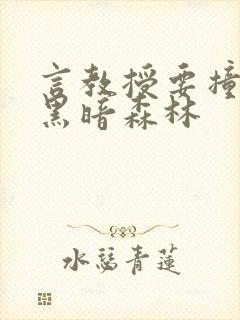 言教授要撞
黑暗森林
水青蓮